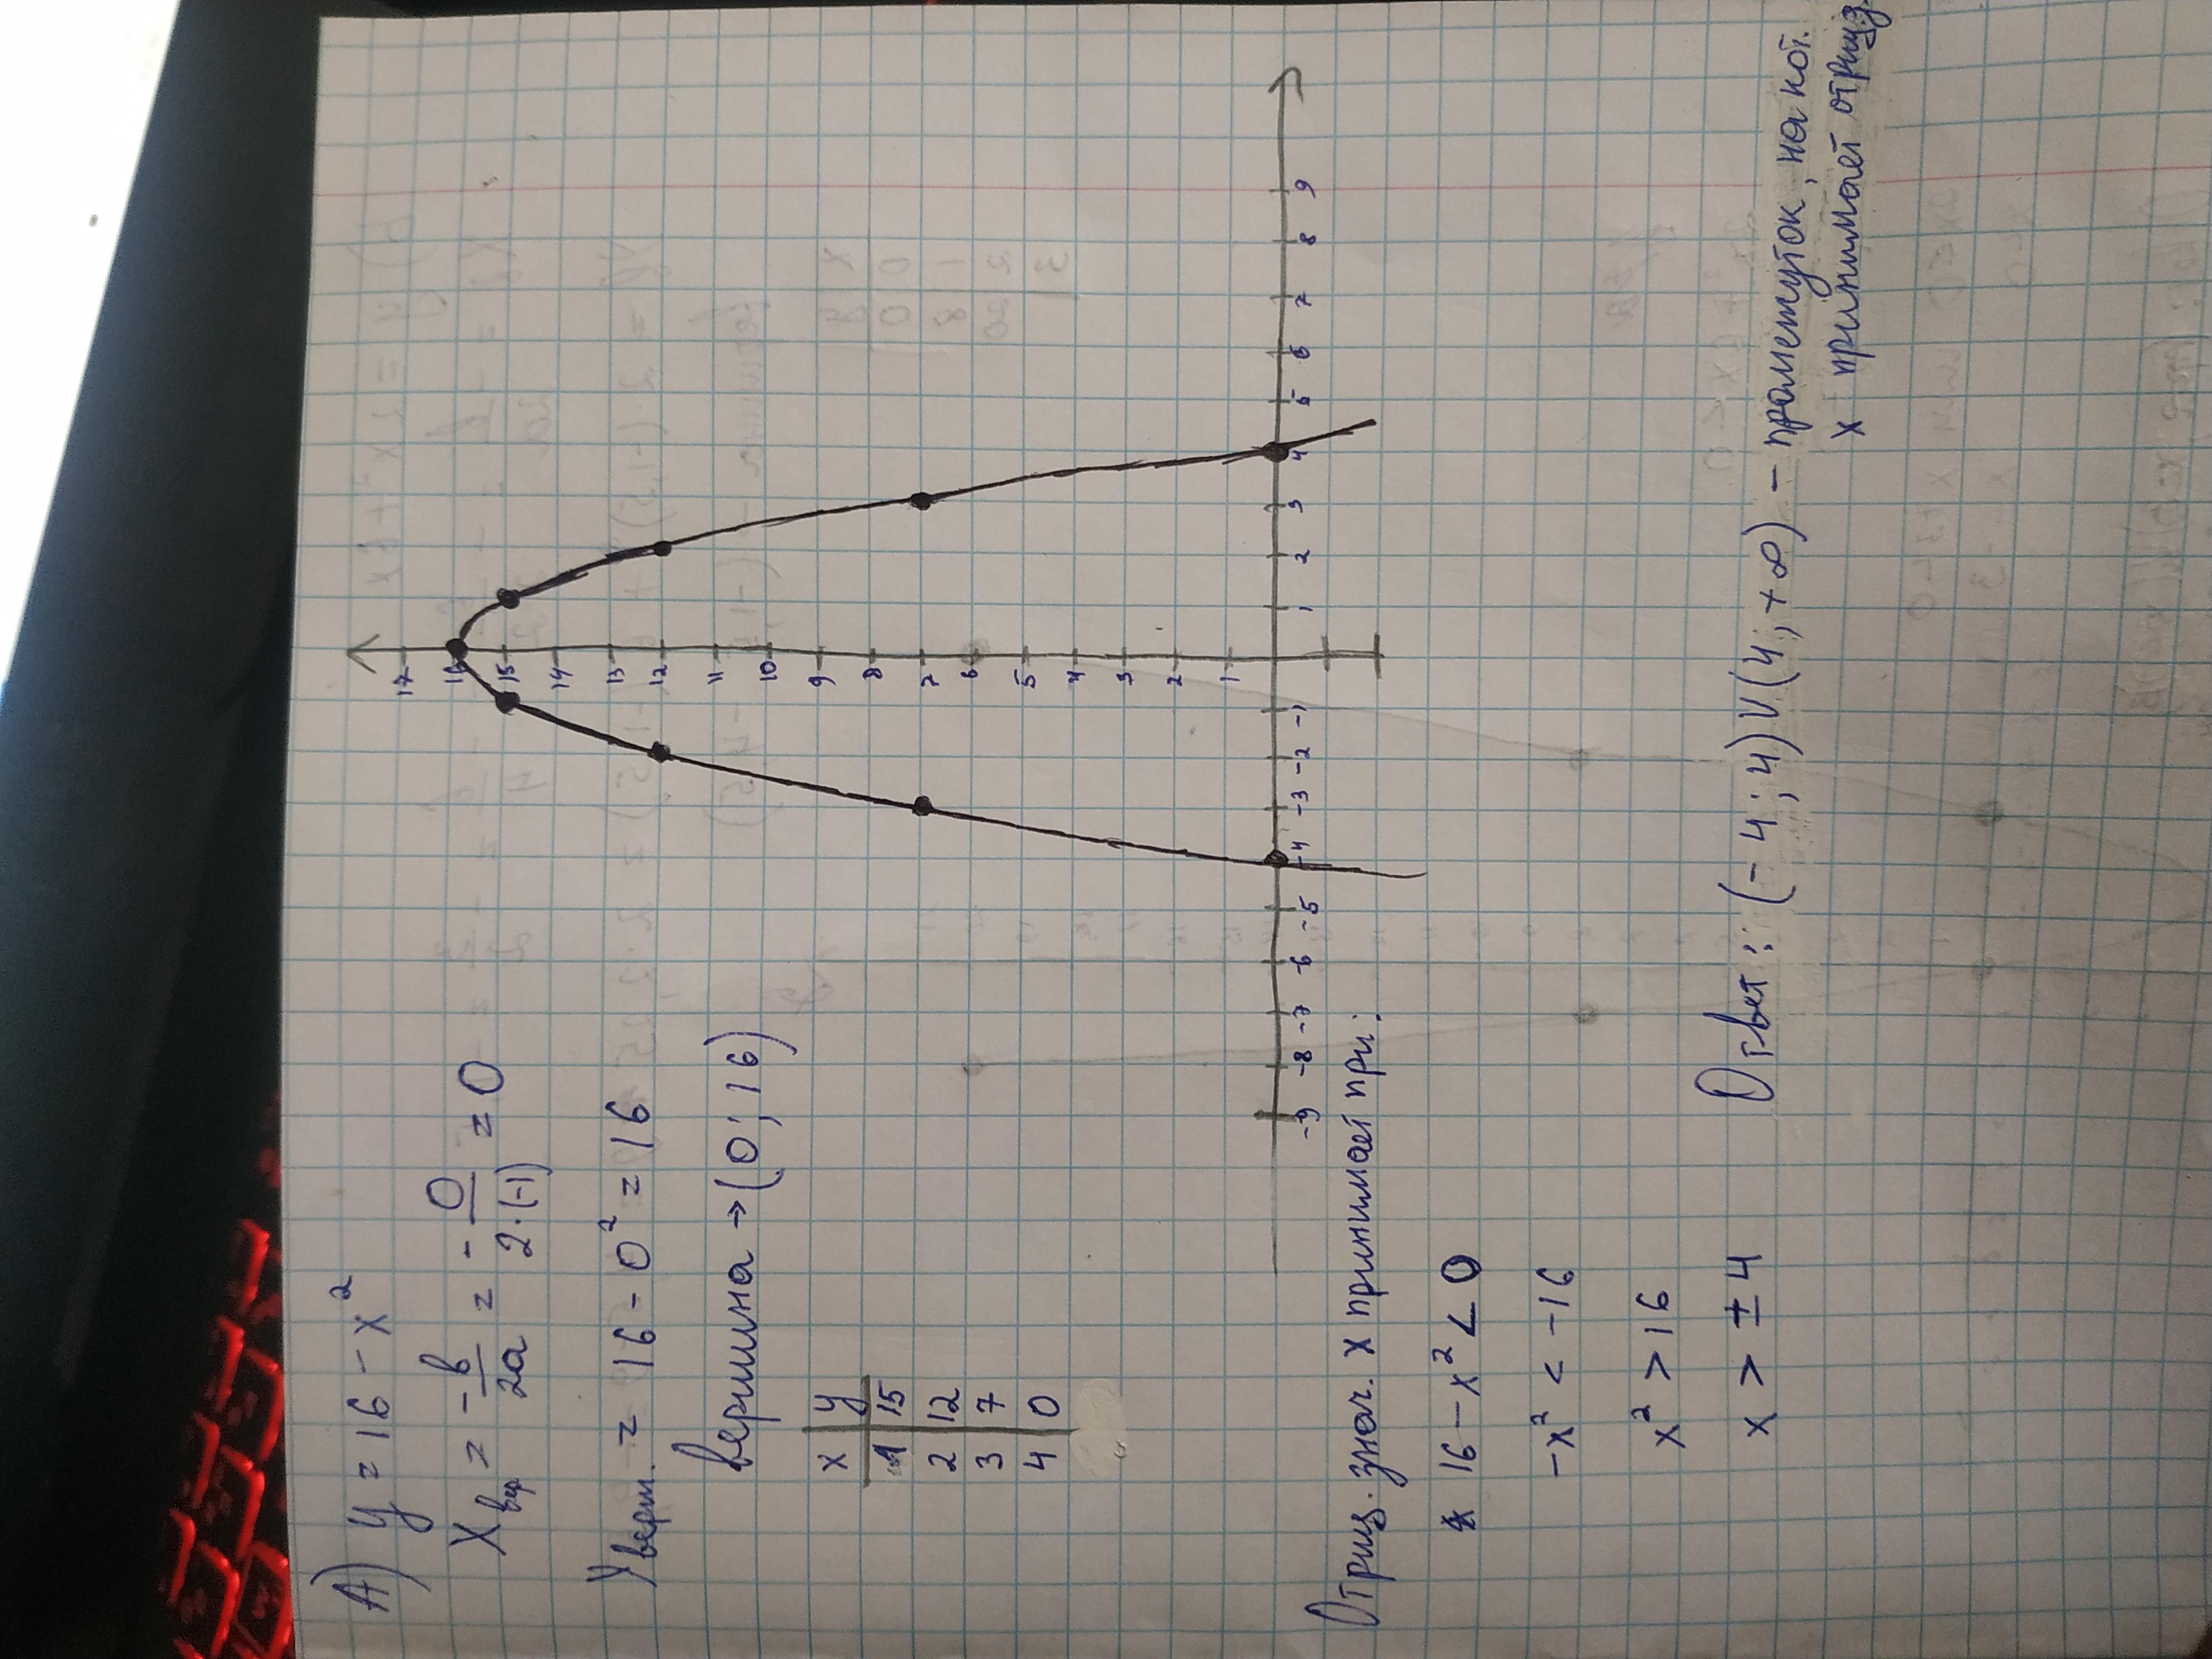 А) y = 16 - x²
Xвер = -в/2a = - 0/2·(-1) = 0
Yверш. = 16 - 0² = 16
вершина → (0; 16)
x y
1 15
2 12
3 7
4 0
17
16
15
14
13
12
11
10
9
8
7
6
5
4
3
2
1
-9 -8 -7 -6 -5 -4 -3 -2 -1 1 2 3 4 5 6 7 8 9
Отриц. знач. x принимает при:
16 - x² < 0
-x² < -16
x² > 16
x > ± 4
Ответ: (-4; 4) V (4; +∞) - промежуток, на кот.
x принимает отриц.